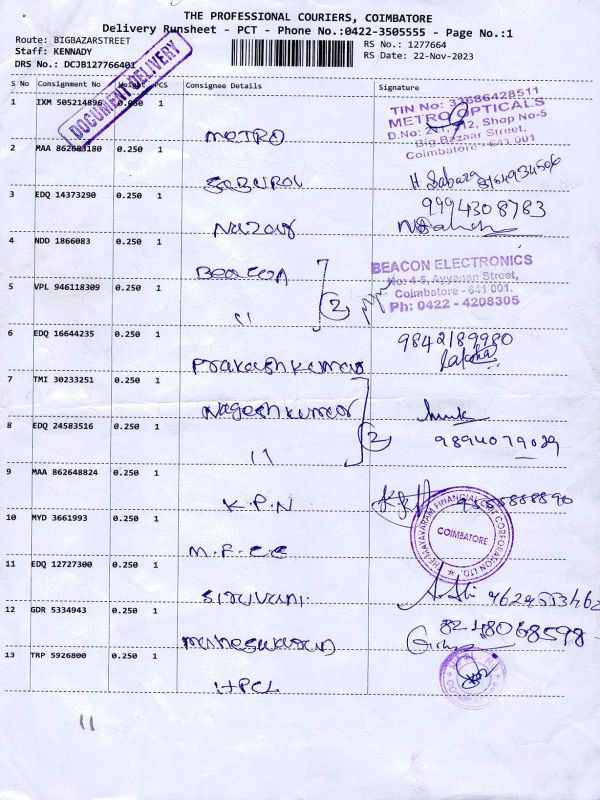 THE PROFESSIONAL COURIERS, COIMBATORE
Delivery Runsheet - PCT - Phone No.:0422-3505555 - Page No.:1
Route: BIGBAZARSTREET
Staff: KENNADY
DRS No.: DCJB127766401
RS No.: 1277664
RS Date: 22-Nov-2023
DOCUMENT DELIVERY
S No Consignment No Weight PCS Consignee Details Signature
1 IXM 505214896 0.050 1 METRO
TIN No: 33686428511
METRO OPTICALS
D.No: 12, Shop No-5
Big Bazaar Street,
Coimbatore - 641 001
2 MAA 862683180 0.250 1 SABUROL H. Sabara
3 EDQ 14373290 0.250 1 Nazar 9994308783
4 NDD 1866083 0.250 1 BEACON
BEACON ELECTRONICS
No: 4-5, Ayyanan Street,
Coimbatore - 641 001.
Ph: 0422 - 4208305
5 VPL 946118309 0.250 1 11 2
6 EDQ 16644235 0.250 1 Prakash kumar 9842189980
7 TMI 30233251 0.250 1 Nagesh kumar
8 EDQ 24583516 0.250 1 11 2 9894079029
9 MAA 862648824 0.250 1 K.P.N
10 MYD 3661993 0.250 1 M.F.CC
THE MAYAVARAM FINANCIAL CHIT CORPORATION LTD.
COIMBATORE
11 EDQ 12727300 0.250 1 Siruvani.
12 GDR 5334943 0.250 1 Maheswaran 8248068598
13 TRP 5926800 0.250 1 HPCL
11